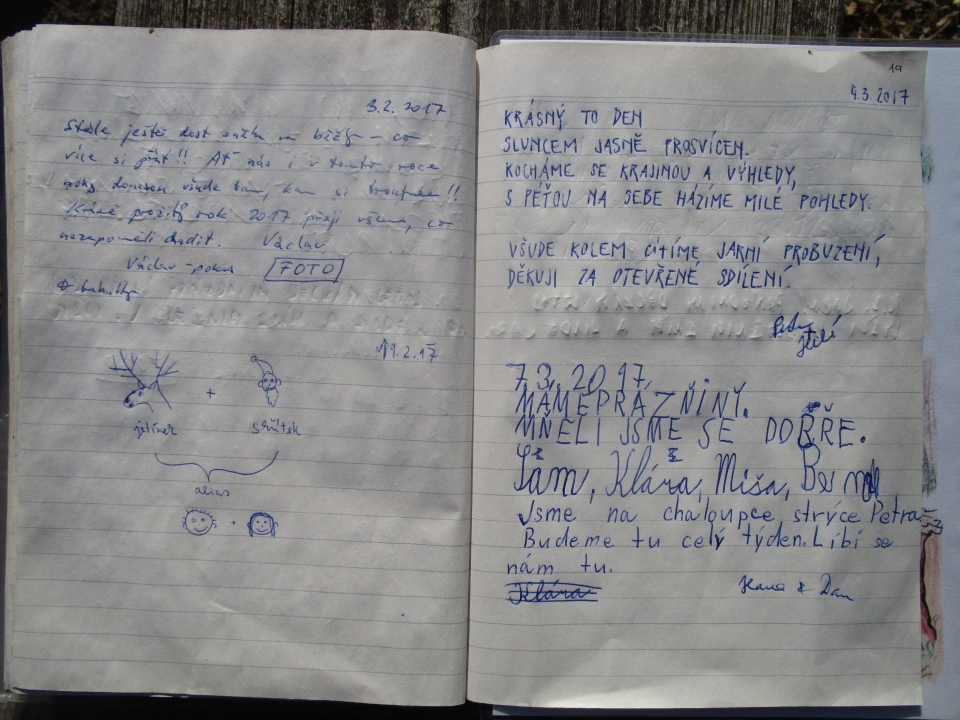 3.2. 2017
Stále ještě dost na běžky – co
více si přát!! Ať nás i v tomto roce
nohy donesou všude tam, kam si troufneme!!
Krásné prožití roku 2017 přeji všem, co
nezapoměli chodit. Václav
Václav - FOTO
9.2.17
+
jelínek skřítek
alias
+
19
4.3.2017
KRÁSNÝ TO DEN
SLUNCEM JASNĚ PROSVÍCEN.
KOCHÁME SE KRAJINOU A VÝHLEDY,
S PÉŤOU NA SEBE HÁZÍME MILÉ POHLEDY.
VŠUDE KOLEM CÍTÍME JARNÍ PROBUZENÍ,
DĚKUJI ZA OTEVŘENÉ SDÍLENÍ.
7.3.2017.
MÁMEPRÁZŇINY.
MNELI JSME SE DOBŘE.
Klára, Míša,
Jsme na chaloupce strýce Petra.
Budeme tu celý týden. Líbí se
nám tu.
Klára
Hana & Dan